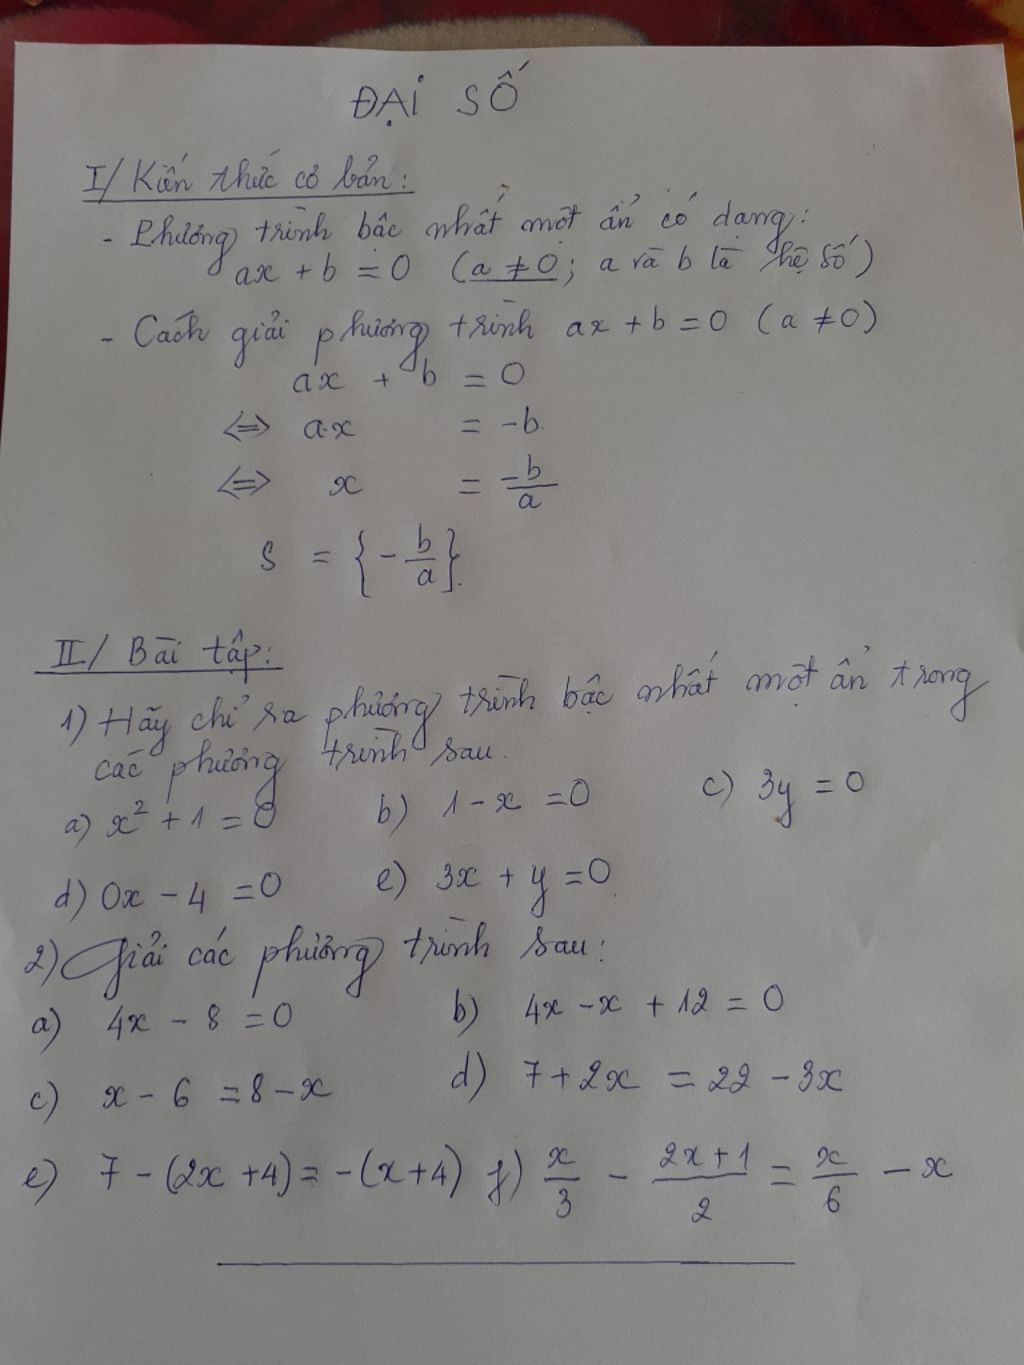 ĐẠI SỐ
I/ Kiến thức cơ bản:
- Phương trình bậc nhất một ẩn có dạng:
ax + b = 0 (a ≠ 0; a và b là hệ số)
- Cách giải phương trình ax + b = 0 (a ≠ 0)
ax + b = 0
⇔ a.x = -b.
⇔ x = -b/a
S = {-b/a}.
II/ Bài tập:
1) Hãy chỉ ra phương trình bậc nhất một ẩn trong
các phương trình sau.
a) x² + 1 = 0 b) 1 - x = 0 c) 3y = 0
d) 0x - 4 = 0 e) 3x + y = 0
2) Giải các phương trình sau:
a) 4x - 8 = 0 b) 4x - x + 12 = 0
c) x - 6 = 8 - x d) 7 + 2x = 22 - 3x
e) 7 - (2x + 4) = -(x + 4) f) x/3 - (2x + 1)/2 = x/6 - x